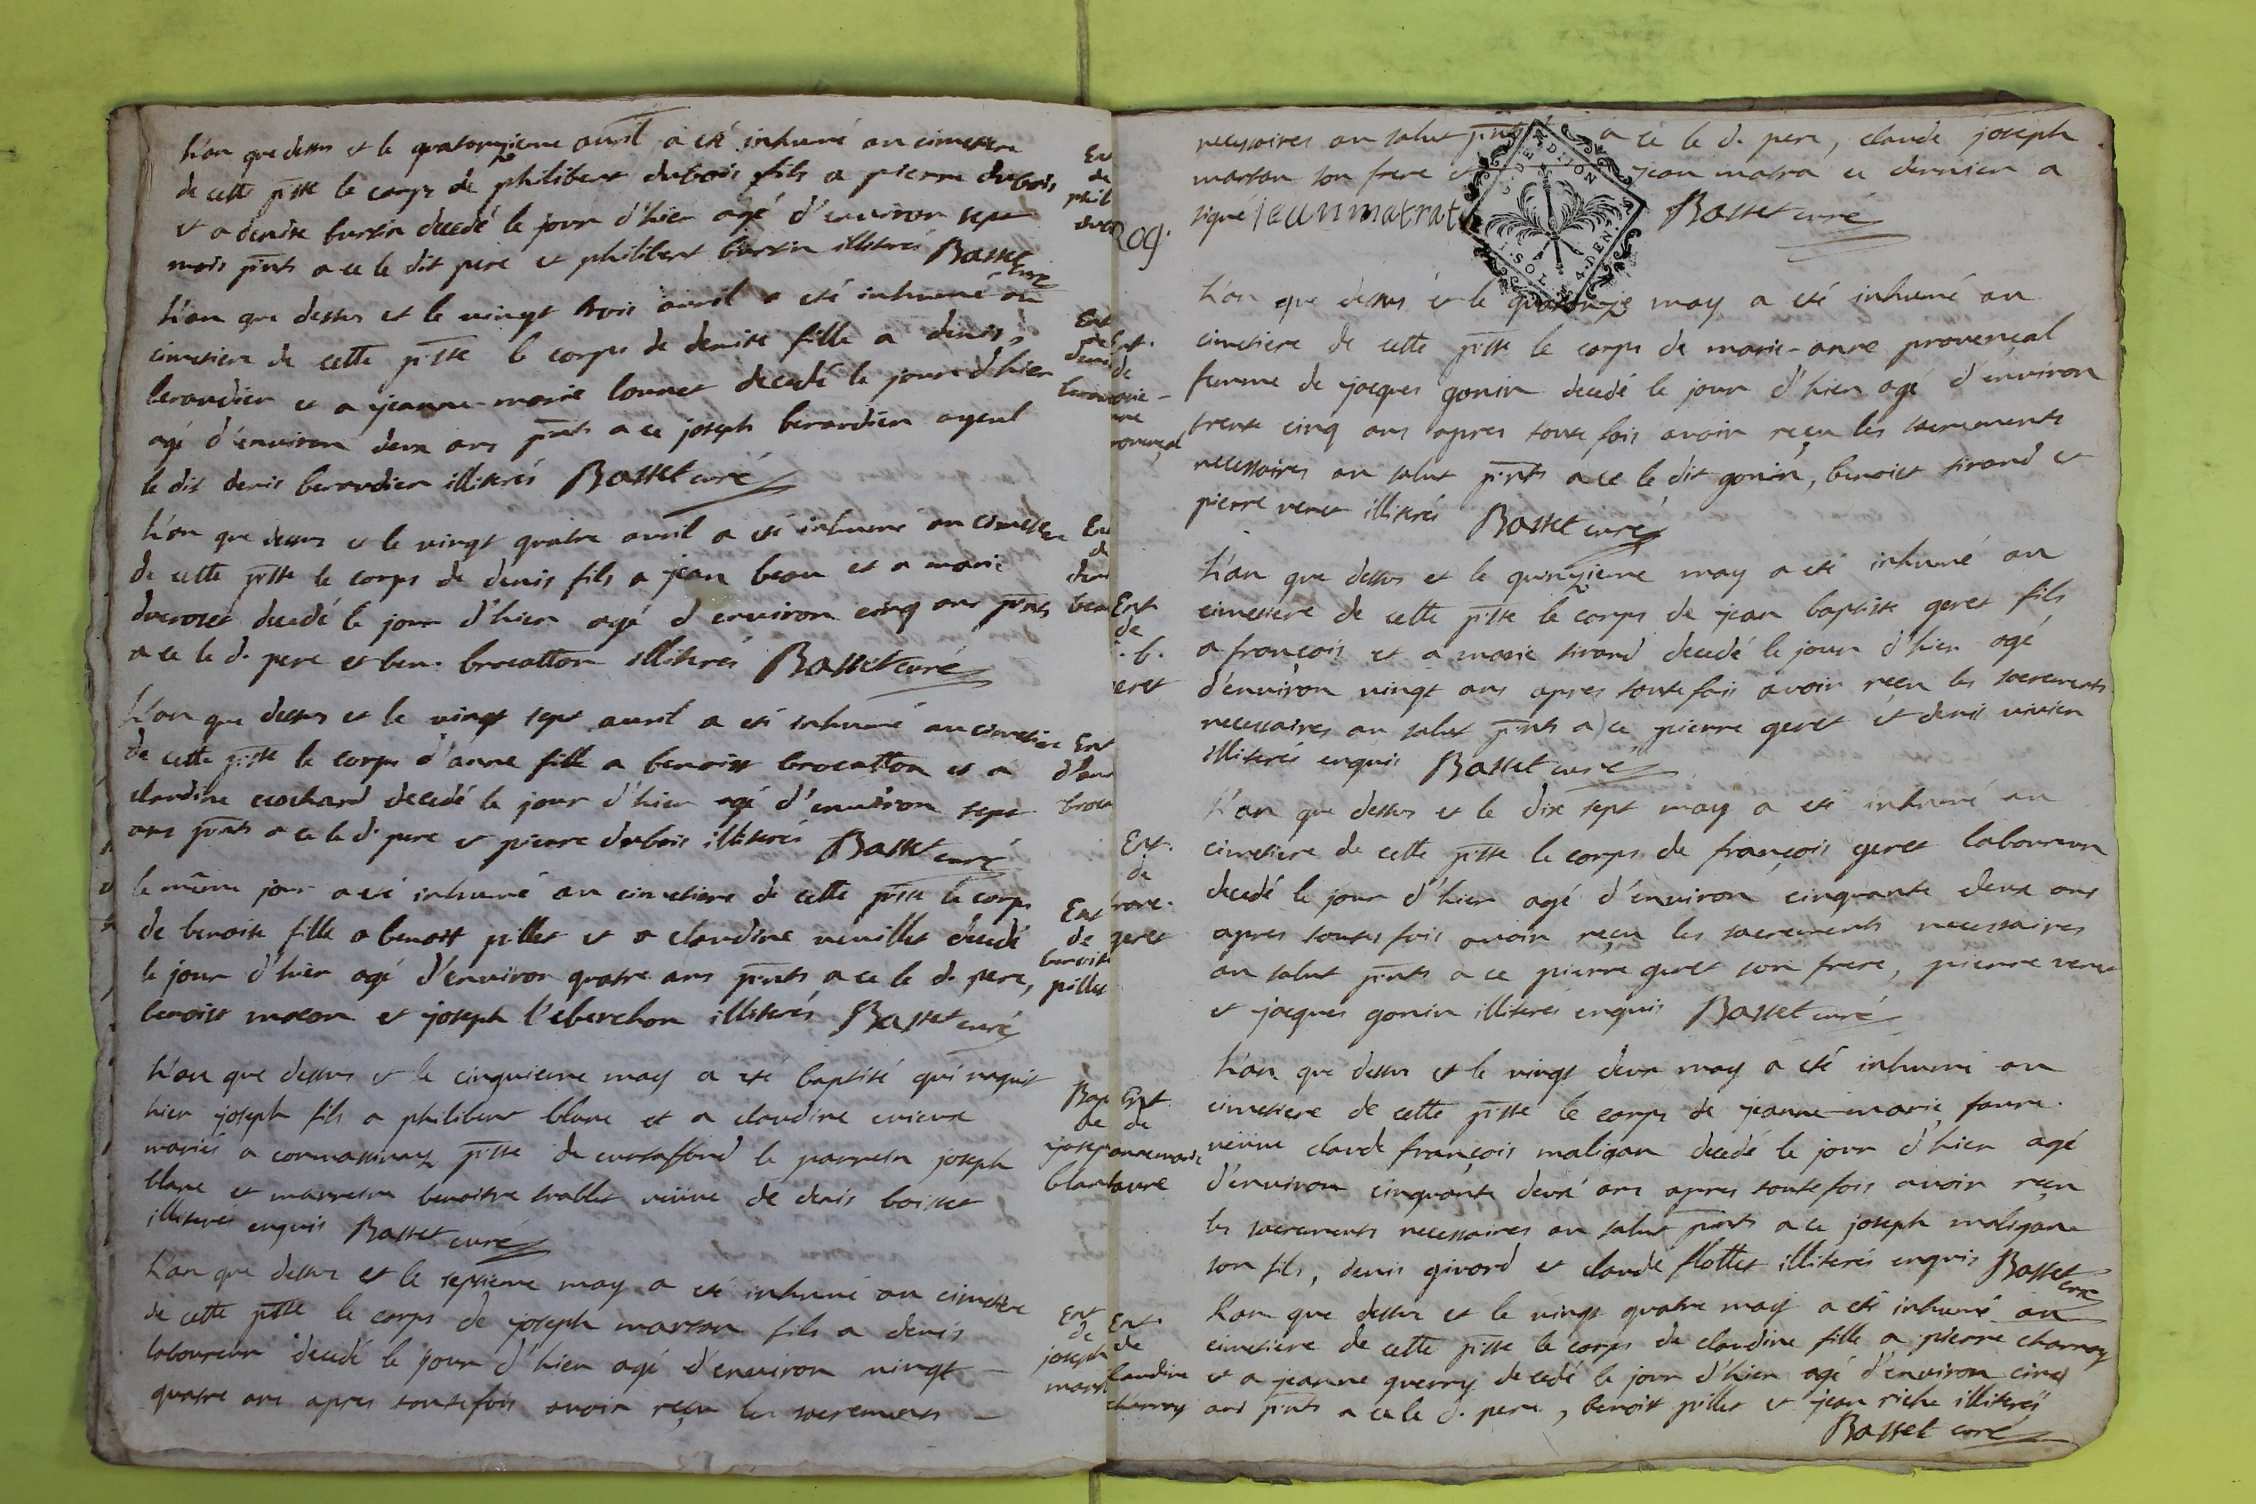 L'an que dessus et le quatorzieme avril a eté inhumé au cimetiere
de cette psse le corps de philibert dubois fils a pierre dubois
et a denise burtin decedé le jour d'hier agé d'environ sept
mois pnts a ce le dit pere et philibert burtin illiterés Basset curé
L'an que dessus et le vingt trois avril a eté inhumé au
cimetiere de cette psse le corps de denise fille a denis
beraudier et a jeanne-marie lonnet decedé le jour d'hier
agé d'environ deux ans pnts a ce joseph beraudier ayeul
le dit denis beraudier illiterés Basset curé
L'an que dessus et le vingt quatre avril a eté inhumé au cimetiere
de cette psse le corps de denis fils a jean beau et a marie
ducroset decedé le jour d'hier agé d'environ cinq ans pnts
a ce le d. pere et ben. brocatton illiterés Basset curé
L'an que dessus et le vingt sept avril a eté inhumé au cimetiere
de cette psse le corps d'anne fille a benoist brocatton et a
claudine cochard decedé le jour d'hier agé d'environ sept
ans pnts a ce le d. pere et pierre dubois illiterés Basset curé
le même jour a eté inhumé au cimetiere de cette psse le corps
de benoite fille a benoist pillet et a claudine nuillet decedé
le jour d'hier agé d'environ quatre ans pnts a ce le d. pere,
benoist macon et joseph l'eberchon illiterés Basset curé
L'an que dessus et le cinquieme may a eté baptisé qui naquit
hier joseph fils a philibert blanc et a claudine
mariés a psse de le parrein joseph
blanc et marreine benoitte trablet veüve de denis boisset
illiterés enquis Basset curé
L'an que dessus et le septieme may a eté inhumé au cimetiere
de cette psse le corps de joseph marson fils a denis
laboureur decedé le jour d'hier agé d'environ vingt
quatre ans apres toutefois avoir reçu les sacrements
Ent
de
phil
dub
Ent
de
deni
berau
Ent
de
deni
beau
Ent
d'ann
broca
Ent
de
benoite
pillet
Bap
de
joseph
blanc
Ent
de
joseph
mars
necessaires au salut pnts a ce le d. pere, claude joseph
marson son frere et jean matra ce dernier a
signé jean matrat Basset curé
G. DE DIJON
1. SOL 4. DEN.
L'an que dessus et le quatorze may a eté inhumé au
cimetiere de cette psse le corps de marie-anne provençal
femme de jacques gonin decedé le jour d'hier agé d'environ
trente cinq ans apres toute fois avoir reçu les sacrements
necessaires au salut pnts a ce le dit gonin, benoist tirand et
pierre venet illiterés Basset curé
L'an que dessus et le quinzieme may a eté inhumé au
cimetiere de cette psse le corps de jean baptiste geret fils
a françois et a marie tirand decedé le jour d'hier agé
d'environ vingt ans apres toutefois avoir reçu les sacrements
necessaires au salut pnts a ce pierre geret et denis vivien
illiterés enquis Basset curé
L'an que dessus et le dix sept may a eté inhumé au
cimetiere de cette psse le corps de françois geret laboureur
decedé le jour d'hier agé d'environ cinquante deux ans
apres toutes fois avoir reçu les sacrements necessaires
au salut pnts a ce pierre geret son frere, pierre venet
et jacques gonin illiterés enquis Basset curé
L'an que dessus et le vingt deux may a eté inhumé au
cimetiere de cette psse le corps de jeanne-marie faure
veüve claude françois maligan decedé le jour d'hier agé
d'environ cinquante deux ans apres toutefois avoir reçu
les sacrements necessaires au salut pnts a ce joseph maligan
son fils, denis givord et claude flottet illiterés enquis Basset curé
L'an que dessus et le vingt quatre may a eté inhumé au
cimetiere de cette psse le corps de claudine fille a pierre charnay
et a jeanne guerry decedé le jour d'hier agé d'environ cinq
ans pnts a ce le d. pere, benoist pillet et jean riche illiterés
Basset curé
Ent.
de
arie-
nne
rovençal
Ent
de
. b.
eret
Ent.
de
franc.
geret
Ent
de
annemarie
faure
Ent.
de
laudine
charnay